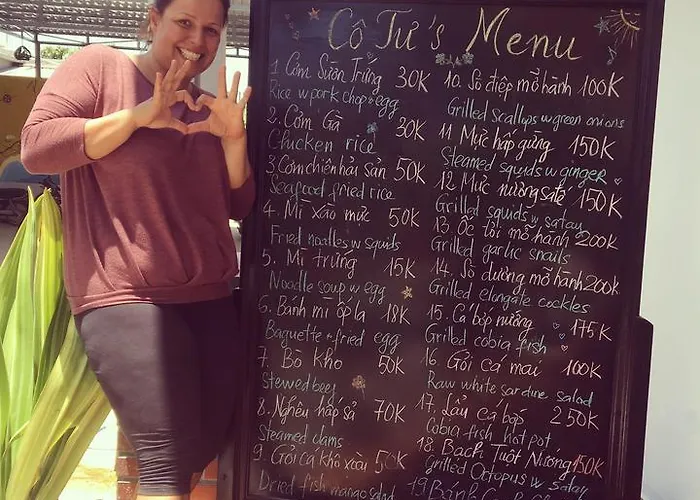 Cô Tư's Menu
1. Cơm Sườn Trứng 30K
Rice w pork chop & egg
2. Cơm Gà 30K
Chicken rice
3. Cơm chiên hải Sản 50K
Seafood fried rice
4. Mì xào mực 50K
Fried noodles w squids
5. Mì trứng 15K
Noodle soup w egg
6. Bánh mì ốp la 18K
Baguette + fried egg
7. Bò Kho 50K
Stewed beef
8. Nghêu hấp sả 70K
Steamed clams
9. Gỏi cá khô xoài 50K
Dried fish mango salad
10. Sò điệp mỡ hành 100K
Grilled scallops w green onions
11. Mực hấp gừng 150K
Steamed squids w ginger
12. Mực nướng saté 150K
Grilled squids w satay
13. Ốc tỏi mỡ hành 200K
Grilled garlic snails
14. Sò dương mỡ hành 200K
Grilled elongate cockles
15. Cá bớp nướng 175K
Grilled cobia fish
16. Gỏi cá mai 100K
Raw white sardine salad
17. Lẩu cá bớp 250K
Cobia fish hot pot
18. Bạch Tuột Nướng 150K
Grilled Octopus w satay
19. Bánh